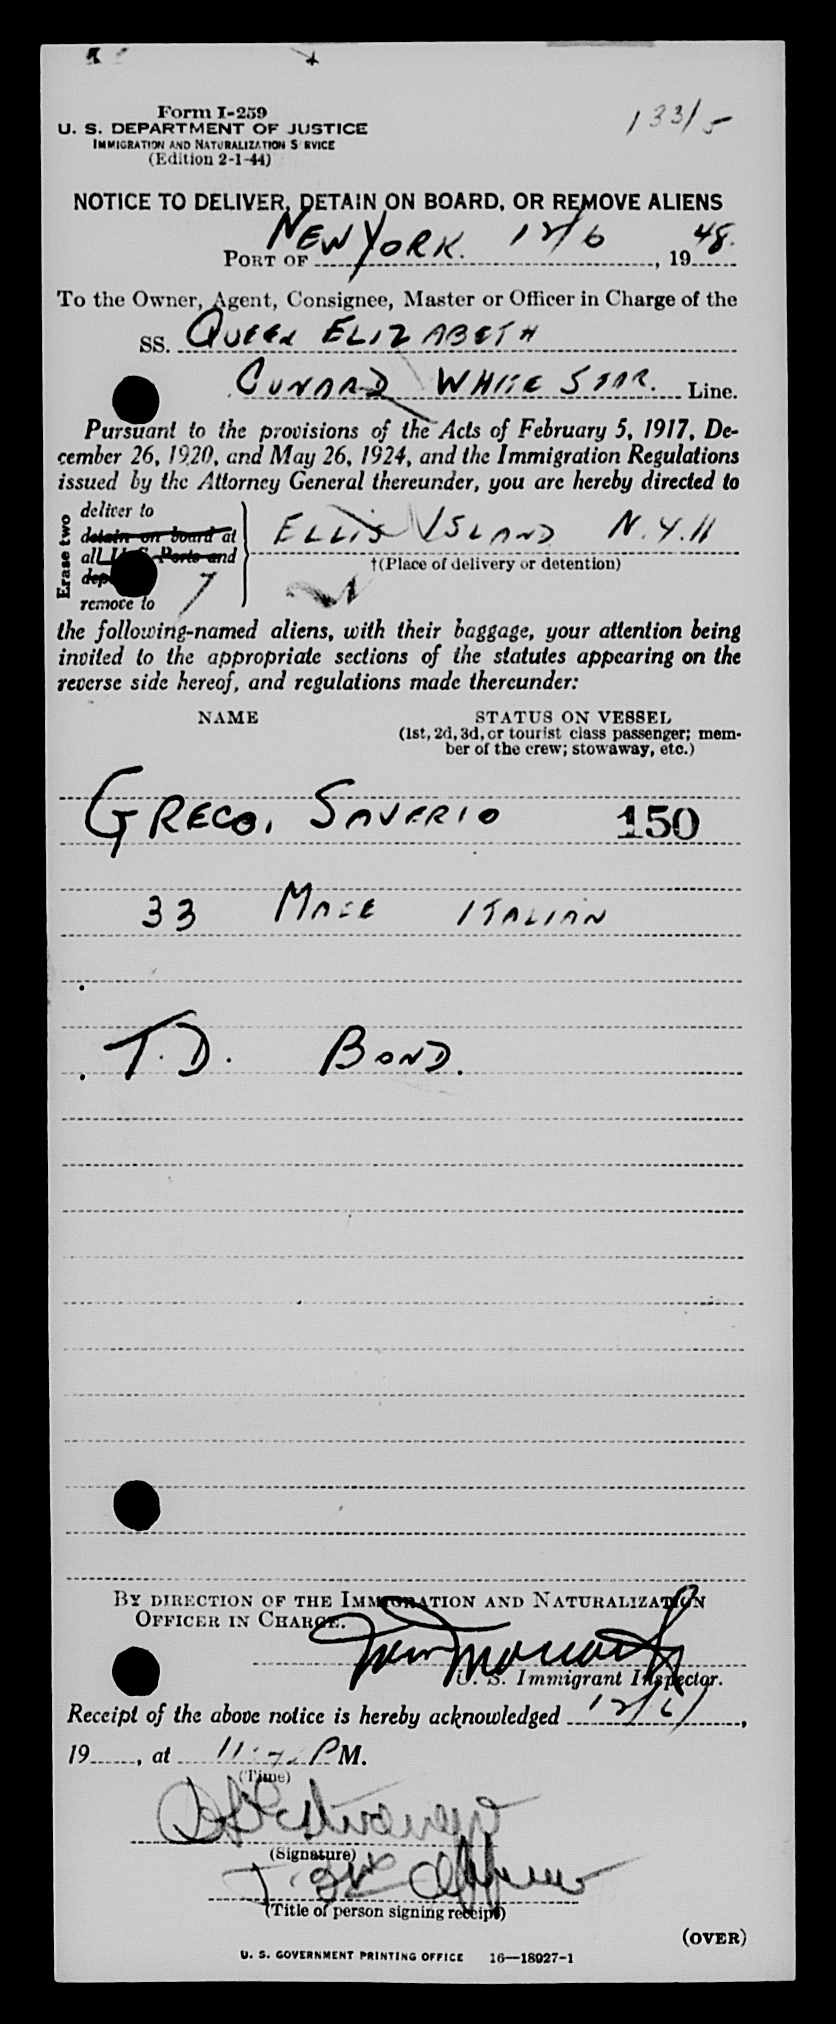 Form I-259
133/5
U. S. DEPARTMENT OF JUSTICE
IMMIGRATION AND NATURALIZATION S RVICE
(Edition 2-1-44)
NOTICE TO DELIVER, DETAIN ON BOARD, OR REMOVE ALIENS
PORT OF NEW YORK. 12/6, 1948.
To the Owner, Agent, Consignee, Master or Officer in Charge of the
SS. QUEEN ELIZABETH
CUNARD WHITE STAR. Line.
Pursuant to the provisions of the Acts of February 5, 1917, De-
cember 26, 1920, and May 26, 1924, and the Immigration Regulations
issued by the Attorney General thereunder, you are hereby directed to
Erase two
deliver to
detain on board at
all U. S. Ports and
dep
remove to
ELLIS ISLAND N.Y.H
†(Place of delivery or detention)
the following-named aliens, with their baggage, your attention being
invited to the appropriate sections of the statutes appearing on the
reverse side hereof, and regulations made thereunder:
NAME STATUS ON VESSEL
(1st, 2d, 3d, or tourist class passenger; mem-
ber of the crew; stowaway, etc.)
GRECO, SAVERIO 150
33 MALE ITALIAN
T.D. BOND.
BY DIRECTION OF THE IMMIGRATION AND NATURALIZATION
OFFICER IN CHARGE.
U. S. Immigrant Inspector.
Receipt of the above notice is hereby acknowledged 12/6/,
19, at PM.
(Time)
(Signature)
(Title of person signing receipt)
(OVER)
U. S. GOVERNMENT PRINTING OFFICE 16—18027-1